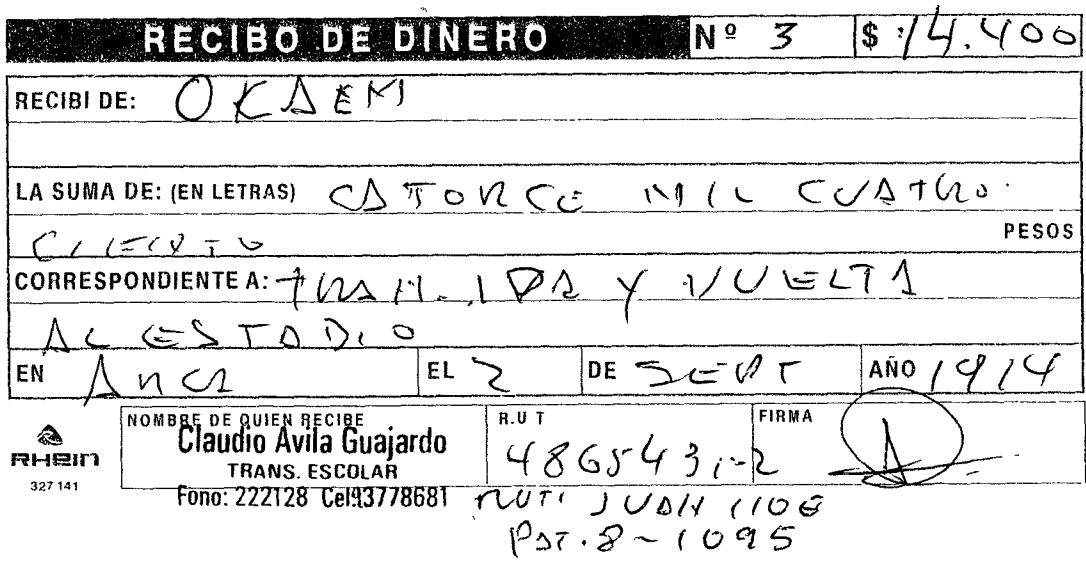 RECIBO DE DINERO Nº 3 $ 14.400
RECIBI DE: OKAEM
LA SUMA DE: (EN LETRAS) CATORCE MIL CUATRO
CIENTO PESOS
CORRESPONDIENTE A: IDA Y VUELTA
AL ESTADIO
EN EL 2 DE SEPT AÑO 1914
RHein
327 141
NOMBRE DE QUIEN RECIBE
Claudio Avila Guajardo
TRANS. ESCOLAR
Fono: 222128 Cel:93778681
R.U T
486543,-2
FIRMA
JUAN
PAT. 8-1095